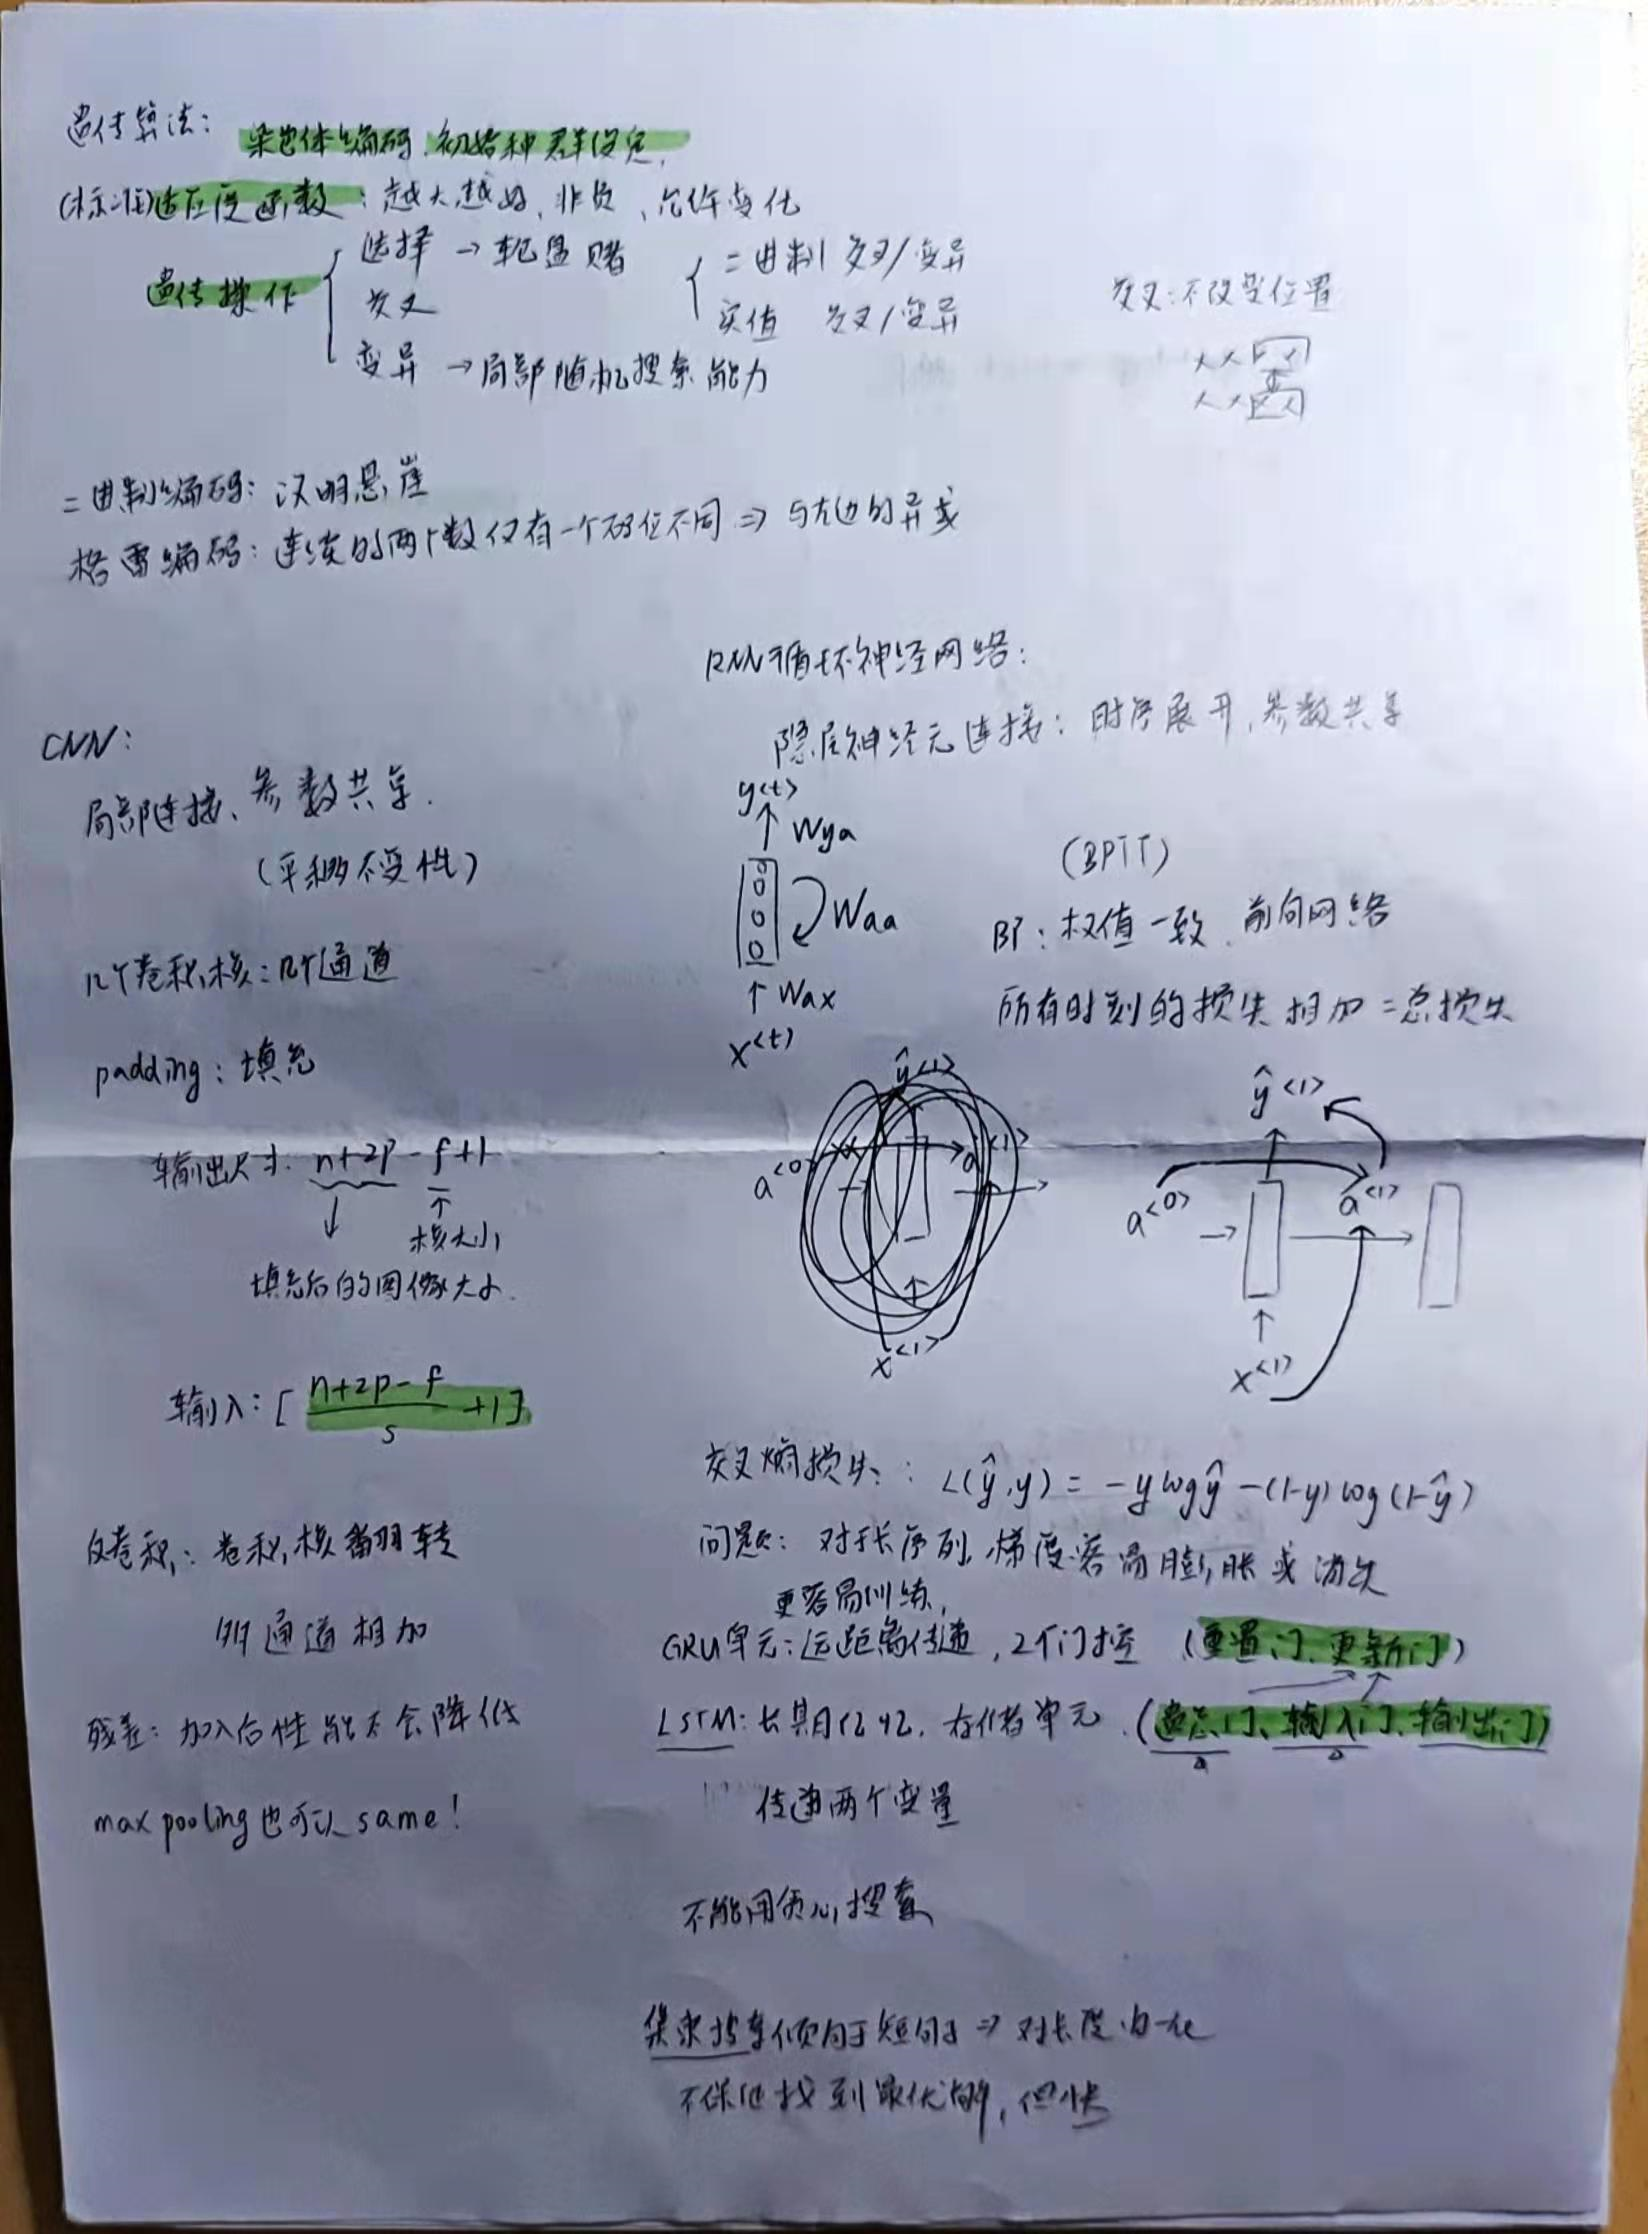 遗传算法： 染色体编码、初始种群设定，
(标准)适应度函数：越大越好、非负、允许变化
遗传操作
选择 → 轮盘赌
交叉
变异 → 局部随机搜索能力
二进制 交叉/变异
实值 交叉/变异
交叉：不改变位置
二进制编码：汉明悬崖
格雷编码：连续的两个数仅有一个码位不同 ⇒ 与左边的异或
CNN：
局部连接、参数共享.
(平移不变性)
几个卷积核：几个通道
padding：填充
输出尺寸. n+2p-f+1
核大小
填充后的图像大小.
输入：[ (n+2p-f)/s +1]
反卷积：卷积核翻转
通道相加
残差：加入后性能不会降低
max pooling也可以 same！
RNN循环神经网络：
隐层神经元连接：时序展开，参数共享
y<t>
Wya
Waa
Wax
x<t>
(BPTT)
BP：权值一致、前向网络
所有时刻的损失相加=总损失
ŷ<1>
a<0> a<1>
x<1>
ŷ<1>
a<0> a<1>
x<1>
交叉熵损失：L(ŷ,y) = -ylogŷ-(1-y)log(1-ŷ)
问题：对于长序列，梯度容易膨胀或消失
更容易训练，
GRU单元：远距离传递，2个门控 (重置门、更新门)
LSTM：长期记忆，存储单元.(遗忘门、输入门、输出门)
传递两个变量
不能用贪心搜索
集束搜索倾向于短句子 ⇒ 对长度归一化
不保证找到最优解，但快